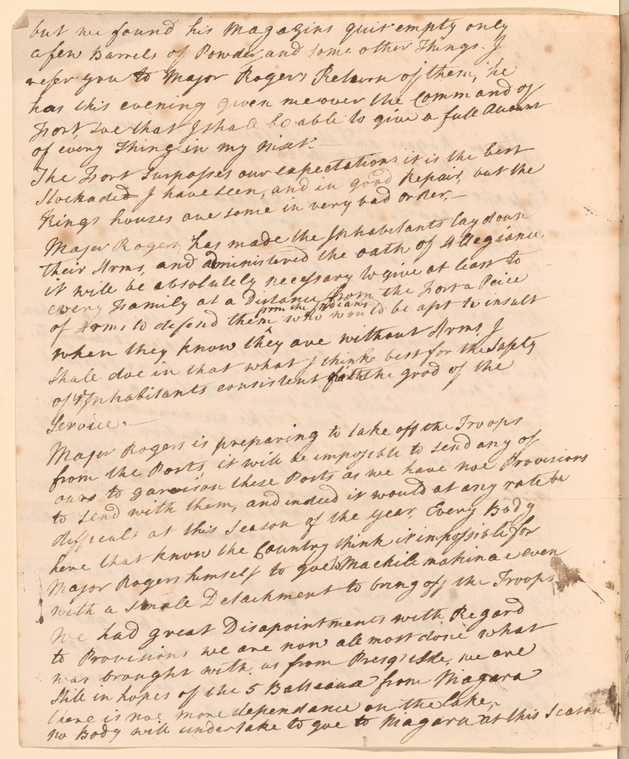 but we found his Magazins quit empty only
a few Barrels of Powder and some other Things. I
refer you to Major Rogers Return of them, he
has this evening given me over the Command of
Fort soe that I shall be able to give a full Account
of every Thing in my next.
The Fort Surpasses our expectations it is the best
Stockaded I have seen, and in good Repair, but the
Kings houses are some in very bad order.—
Major Rogers has made the Inhabitants lay down
their Arms, and administered the oath of Allegiance
it will be absolutely necessary to give at least to
every Family at a Distance from the Fort a Peice
from the Indians
of Arms to defend them who would be apt to insult
when they know they are without Arms, I
Shall doe in that what I think best for the Safty
of ye Inhabitants consistent with the good of the
Service.—
Major Rogers is preparing to take off the Troops
from the Posts, it will be impossible to send any of
ours to garrison these Posts as we have noe Provisions
to send with them, and indeed it would at any rate be
difficult at this Season of the year. Every Body
here that know the Country think it impossible for
Major Rogers himself to goe to Machilemakinac even
with a small Detachment to bring off the Troops
We had great Disapointments with Regard
to Provisions we are now allmost done what
was brought with us from Presqisle, we are
Still in hopes of the 5 Batteaux from Niagara
there is noe more dependance on the lake,
no Body will undertake to goe to Niagara at this Season